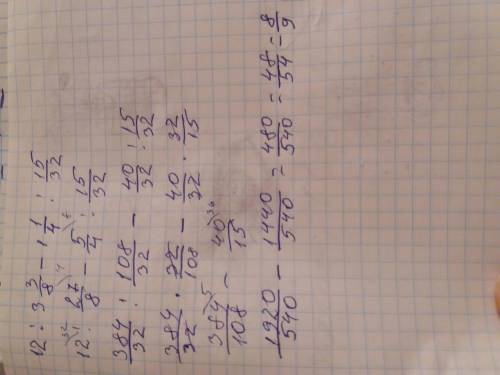 12 : 3 3/8 - 1 1/4 : 15/32
12 : 27/8 - 5/4 : 15/32
384/32 : 108/32 - 40/32 : 15/32
384/32 · 32/108 - 40/32 · 32/15
384/108 - 40/15
1920/540 - 1440/540 = 480/540 = 48/54 = 8/9